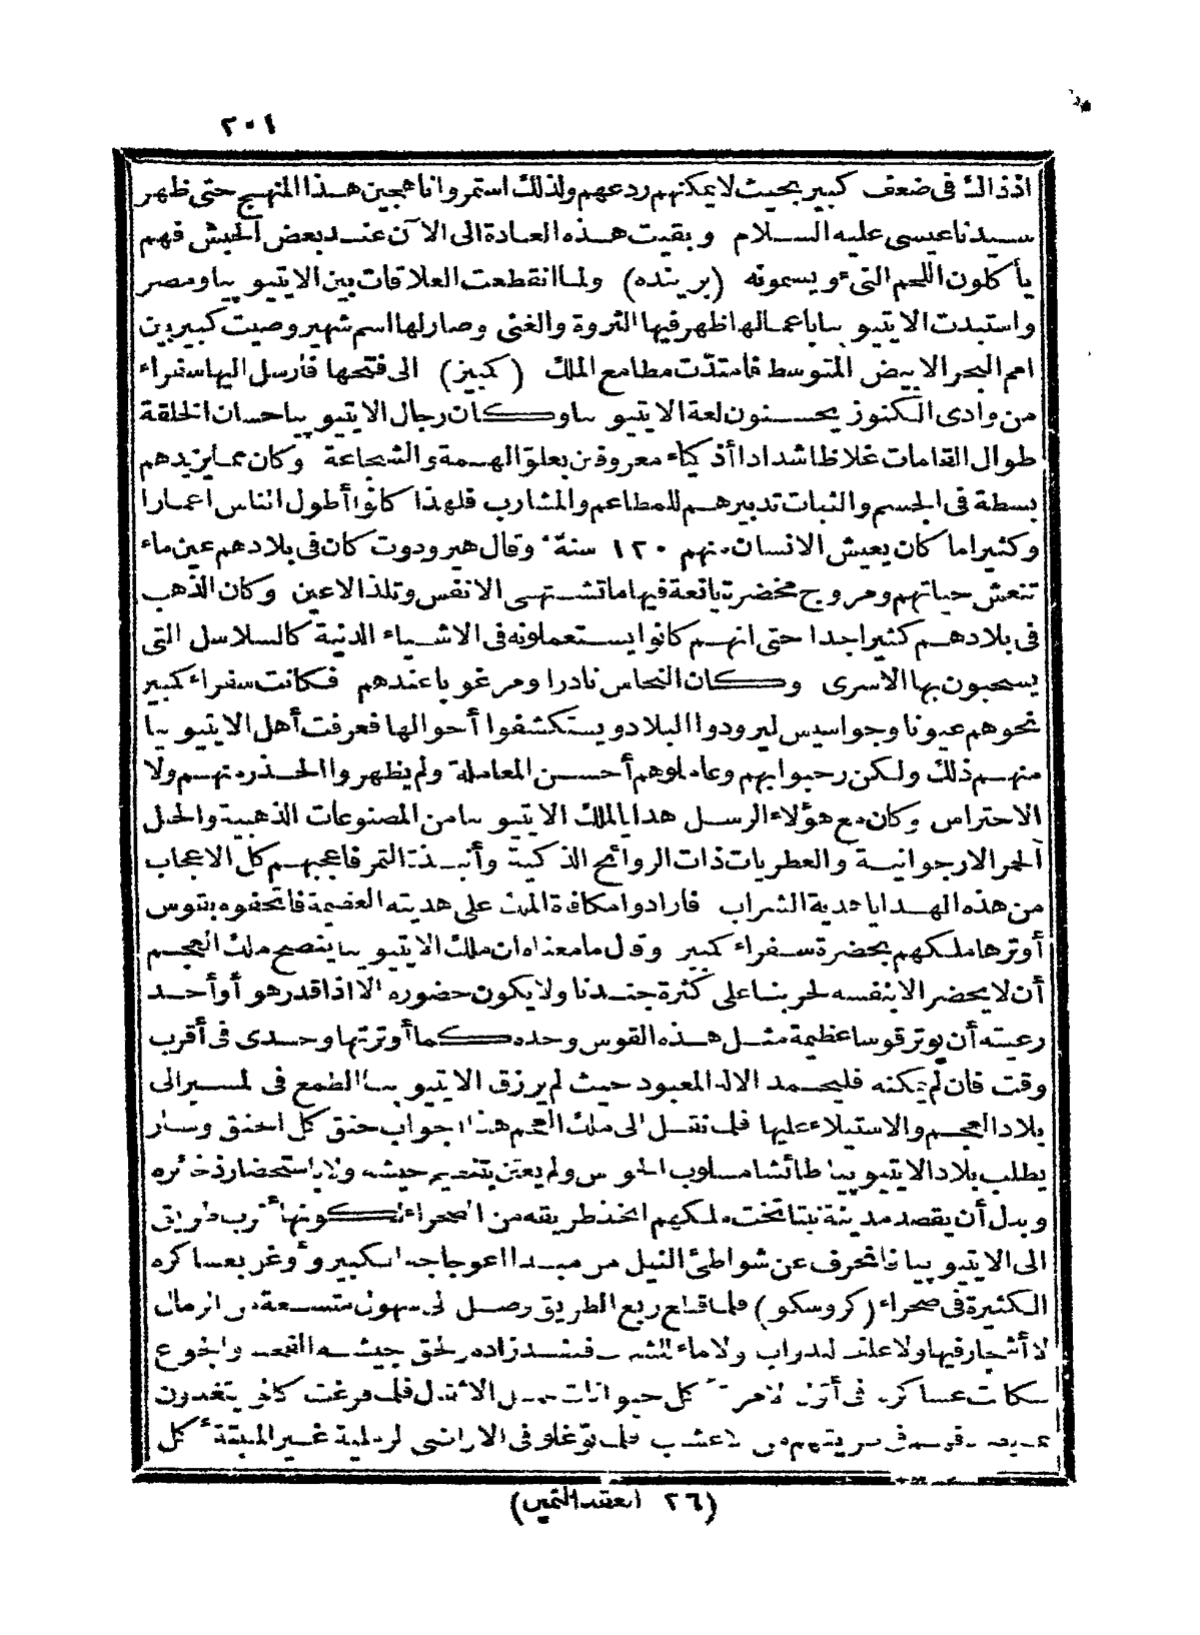 ٢٠١
اذذاك فى ضعف كبير بحيث لا يمكنهم ردعهم ولذلك استمروا ناهجين هذا المنهج حتى ظهر
سيدنا عيسى عليه السلام وبقيت هذه العادة الى الآن عند بعض الحبش فهم
يأكلون اللحم النىء ويسمونه (برينده) ولما انقطعت العلاقات بين الايتيوبيا ومصر
واستبدت الايتيوبيا باعمالها ظهر فيها الثروة والغنى وصار لها اسم شهير وصيت كبير بين
امم البحر الابيض المتوسط فامتدت مطامع الملك (كبيز) الى فتحها فأرسل اليها سفراء
من وادى الكنوز يحسنون لغة الايتيوبيا وكان رجال الايتيوبيا حسان الخلقة
طوال القامات غلاظا شدادا أذكياء معروفين بعلو الهمة والشجاعة وكان مما يزيدهم
بسطة فى الجسم والثبات تدبيرهم للمطاعم والمشارب فلهذا كانوا أطول الناس اعمارا
وكثيرا ما كان يعيش الانسان منهم ١٢٠ سنة وقال هيرودوت كان فى بلادهم عين ماء
تنعش حياتهم ومروج مخضرة يانعة فيها ما تشتهى الانفس وتلذ الاعين وكان الذهب
فى بلادهم كثيرا جدا حتى انهم كانوا يستعملونه فى الاشياء الدنية كالسلاسل التى
يسحبون بها الاسرى وكان النحاس نادرا ومرغوبا عندهم فكانت سفراء كبيز
نحوهم عيونا وجواسيس ليرودوا البلاد ويستكشفوا أحوالها فعرفت أهل الايتيوبيا
منهم ذلك ولكن رحبوا بهم وعاملوهم أحسن المعاملة ولم يظهروا الحذر منهم ولا
الاحتراس وكان مع هؤلاء الرسل هدايا لملك الايتيوبيا من المصنوعات الذهبية والحلل
الحمر الارجوانية والعطريات ذات الروائح الذكية وأنبذة التمر فاعجبهم كل الاعجاب
من هذه الهدايا هدية الشراب فارادوا مكافاة الملك على هديته العظيمة فاتحفوه بقوس
أوترها ملكهم بحضرة سفراء كبيز وقال ما معناه ان ملك الايتيوبيا ينصح ملك العجم
أن لا يحضر الا بنفسه لحربنا على كثرة جندنا ولا يكون حضوره الا اذا قدر هو أو أحد
رعيته أن يوتر قوسا عظيمة مثل هذه القوس وحده كما أوترتها وحدى فى أقرب
وقت فان لم يمكنه فليحمد الاله المعبود حيث لم يرزق الايتيوبيا الطمع فى المسير الى
بلاد العجم والاستيلاء عليها فلما نقل الى ملك العجم هذا الجواب حنق كل الحنق وسار
يطلب بلاد الايتيوبيا طائشا مسلوب الحواس ولم يعتن بتقديم جيشه ولا باستحضار ذخائره
وبدل أن يقصد مدينة نبتا تخت ملكهم اتخذ طريقه من الصحراء لكونها أقرب طريق
الى الايتيوبيا فانحرف عن شواطئ النيل من مبدا اعوجاجه الكبير وأوغر بعساكره
الكثيرة فى صحراء (كروسكو) فلما قطع ربع الطريق وصل الى سهول متسعة من الرمال
لا أشجار فيها ولا علف للدواب ولا ماء للشرب فنفد زاده ولحق جيشه القحط والجوع
كل حيوانات حمل الاثقال فلما فرغت كانوا يتغذون
من الاعشاب فلما توغلوا فى الاراضى الرملية غير المنبتة أكل
(٢٦ العقد الثمين)